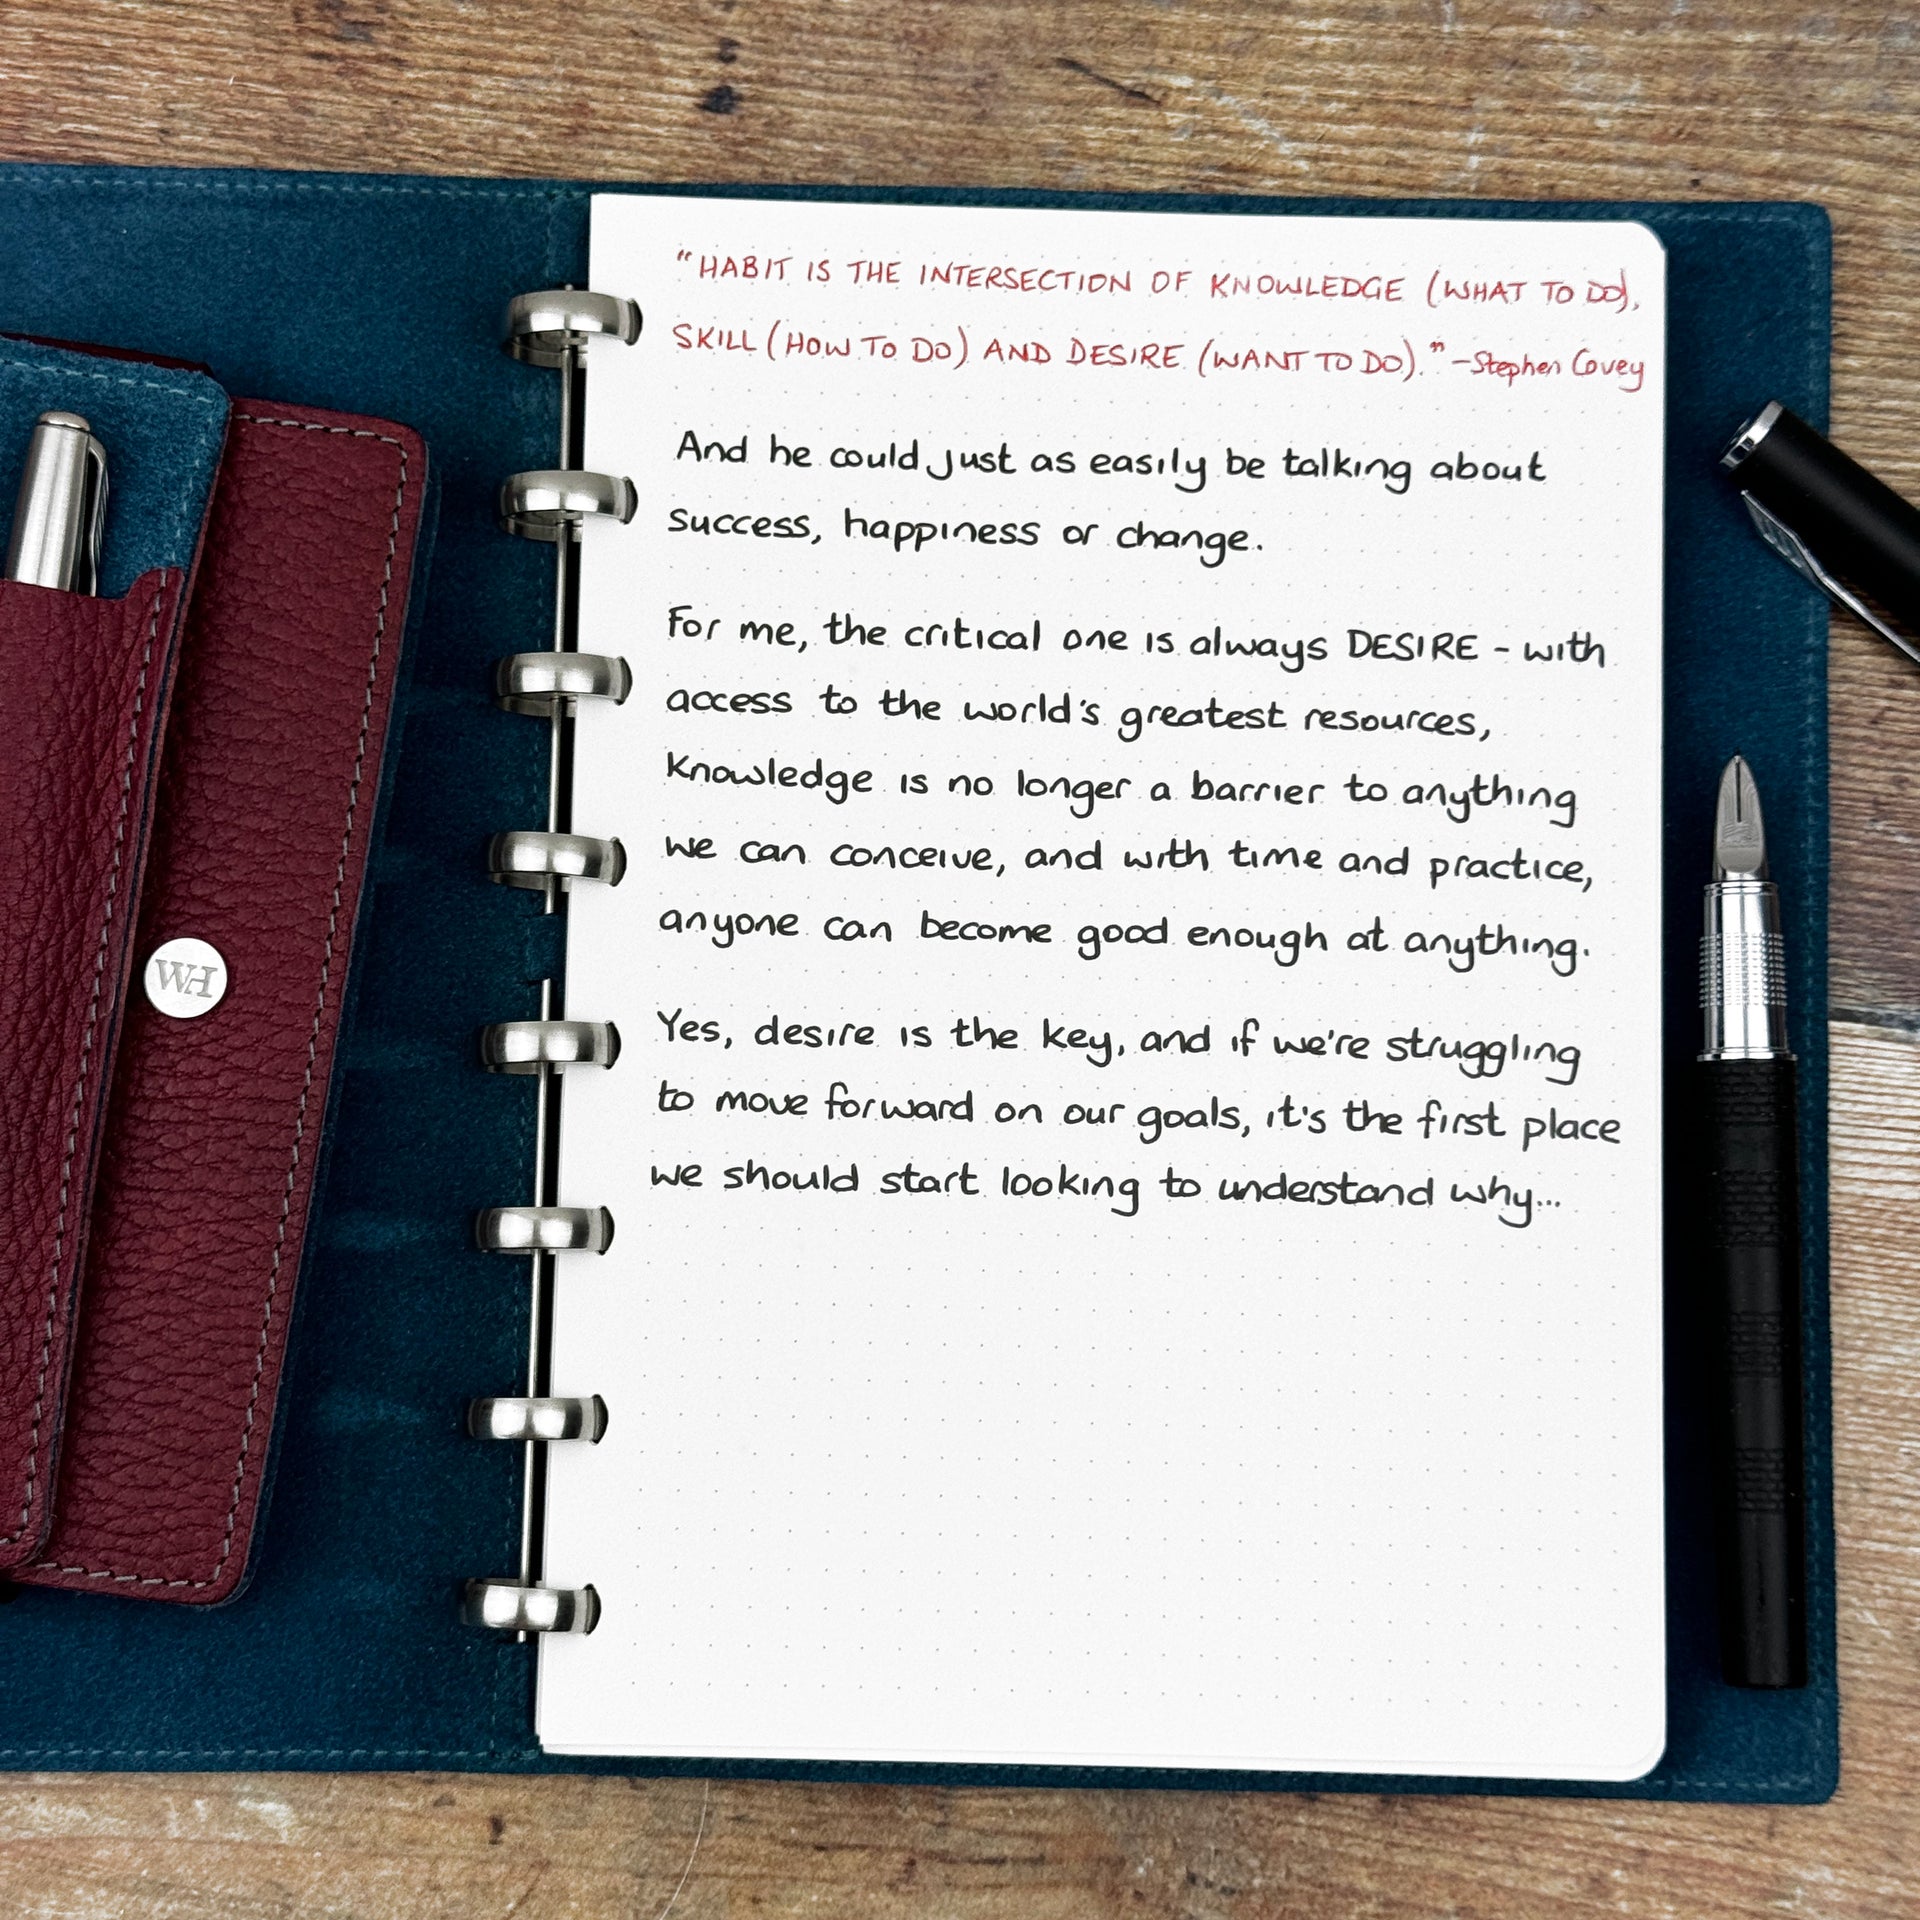 "HABIT IS THE INTERSECTION OF KNOWLEDGE (WHAT TO DO),
SKILL (HOW TO DO) AND DESIRE (WANT TO DO)." - Stephen Covey
And he could just as easily be talking about
success, happiness or change.
For me, the critical one is always DESIRE - with
access to the world's greatest resources,
Knowledge is no longer a barrier to anything
we can conceive, and with time and practice,
anyone can become good enough at anything.
Yes, desire is the key, and if we're struggling
to move forward on our goals, it's the first place
we should start looking to understand why...
WH